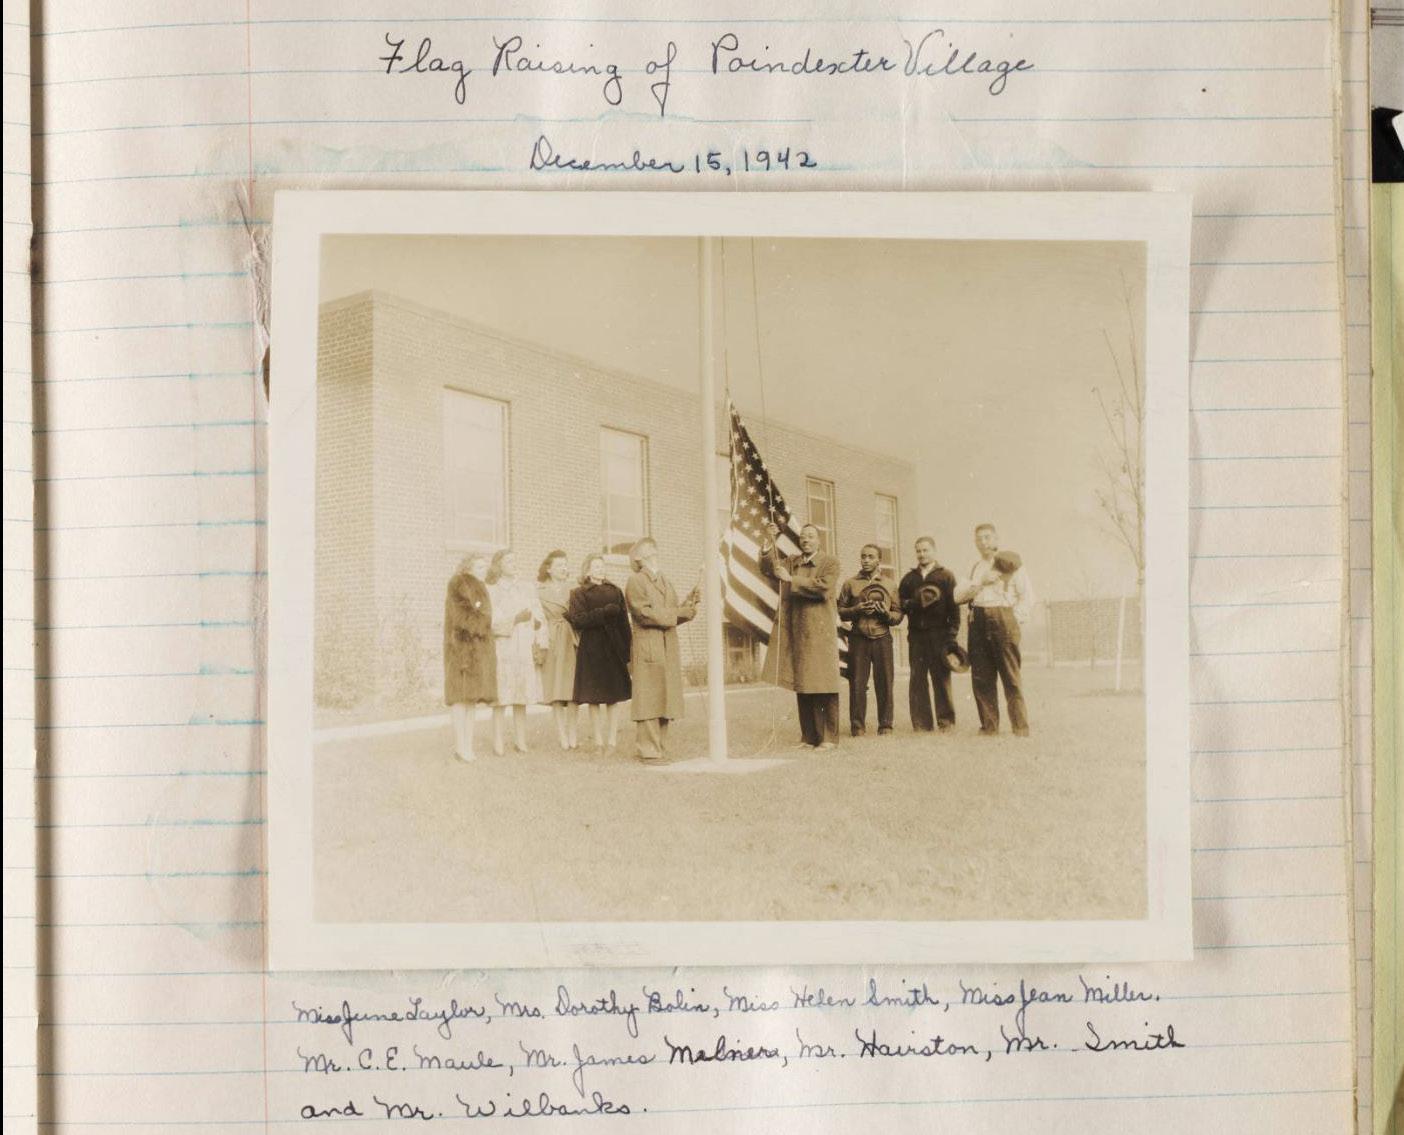 Flag Raising of Poindexter Village
December 15, 1942
Miss June Taylor, Mrs. Dorothy Bolin, Miss Helen Smith, Miss Jean Miller.
Mr. C.E. Maule, Mr. James Hairston, Mr. Smith
and Mr. Wilbanks.